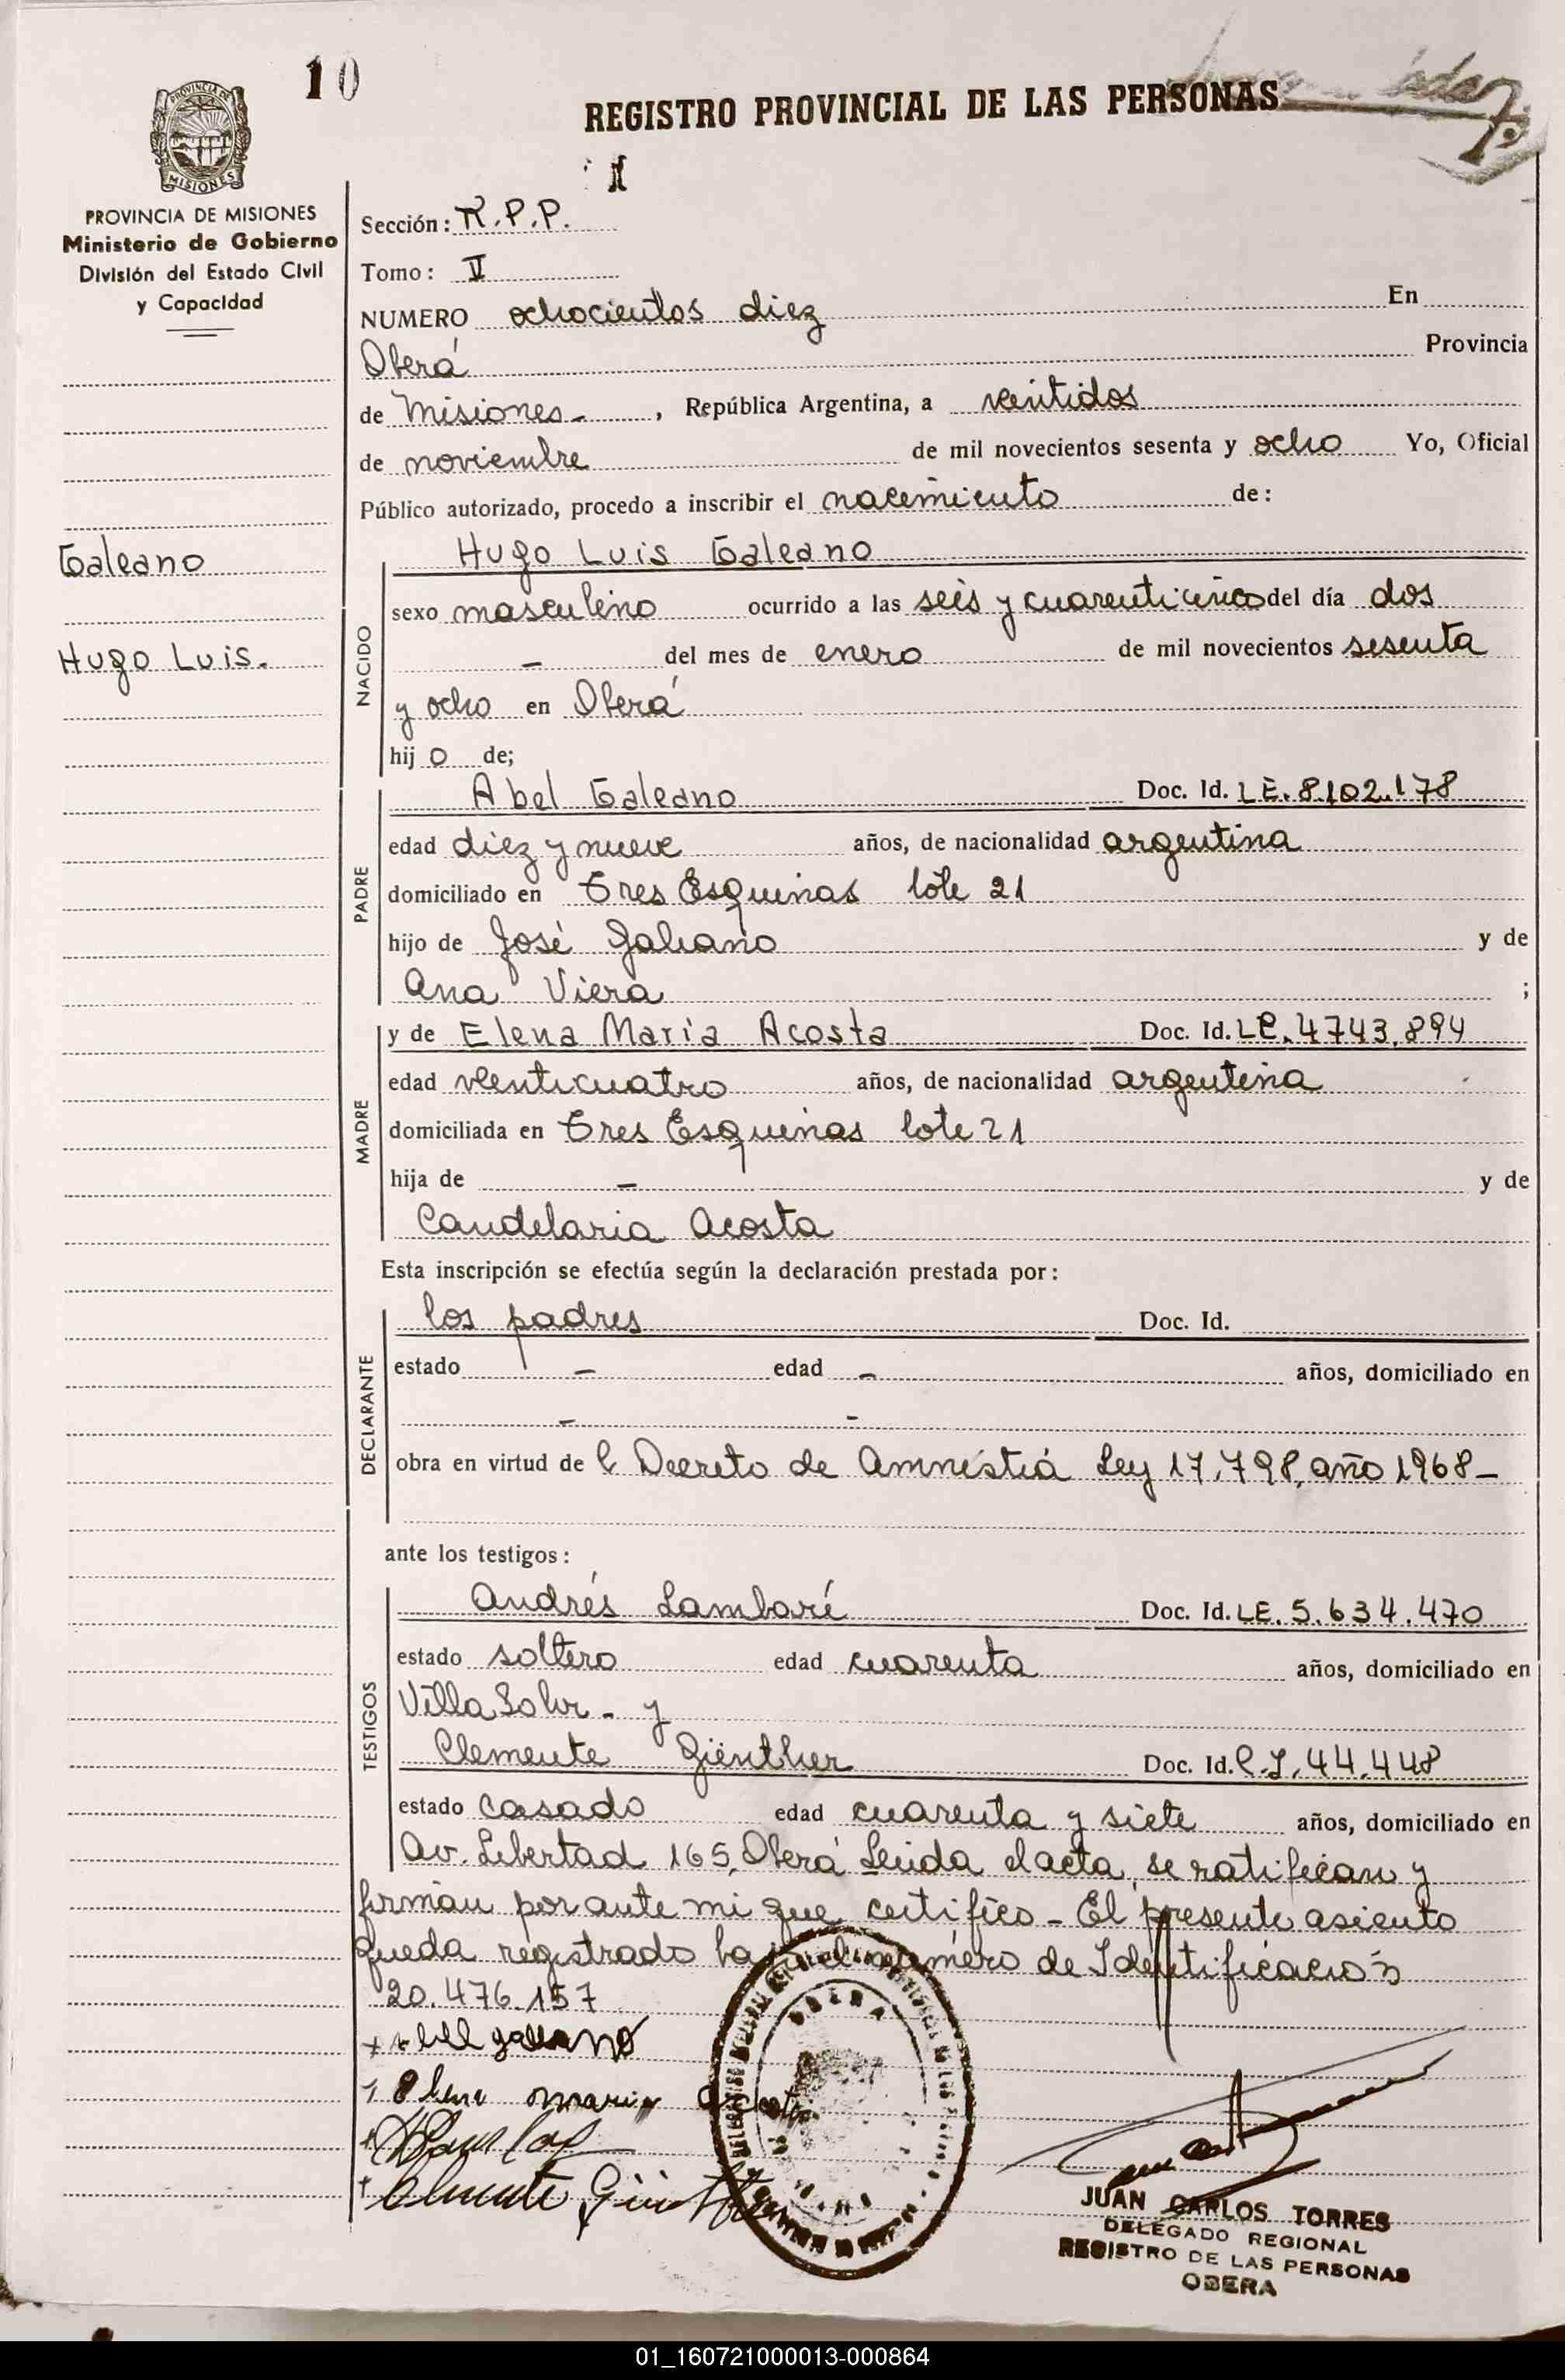 10
REGISTRO PROVINCIAL DE LAS PERSONAS
PROVINCIA DE MISIONES
MISIONES
PROVINCIA DE MISIONES
Ministerio de Gobierno
División del Estado Civil
y Capacidad
Galeano
Hugo Luis.
Sección: R.P.P.
Tomo: V
NUMERO ochocientos diez En
Oberá Provincia
de Misiones-, República Argentina, a veintidos
de noviembre de mil novecientos sesenta y ocho Yo, Oficial
Público autorizado, procedo a inscribir el nacimiento de:
NACIDO
Hugo Luis Galeano
sexo masculino ocurrido a las seis y cuarenticinco del día dos
- del mes de enero de mil novecientos sesenta
y ocho en Oberá
hij o de;
PADRE
Abel Galeano Doc. Id. L.E. 8.102.178
edad diez y nueve años, de nacionalidad argentina
domiciliado en Tres Esquinas lote 21
hijo de José Galeano y de
Ana Viera ;
MADRE
y de Elena María Acosta Doc. Id. L.C. 4.743.894
edad venticuatro años, de nacionalidad argentina
domiciliada en Tres Esquinas lote 21
hija de - y de
Candelaria Acosta
Esta inscripción se efectúa según la declaración prestada por:
DECLARANTE
los padres Doc. Id.
estado - edad - años, domiciliado en
- -
obra en virtud de Decreto de Amnistía Ley 17.798, año 1968-
ante los testigos:
TESTIGOS
Andrés Lambaré Doc. Id. L.E. 5.634.470
estado soltero edad cuarenta años, domiciliado en
Villa - y
Clemente Günther Doc. Id. C.I. 44.448
estado casado edad cuarenta y siete años, domiciliado en
Av. Libertad 165, Oberá Leída el acta, se ratifican y
firman por ante mi que certifico - El presente asiento
queda registrado bajo el número de Identificación
20.476.157
Abel galeano
Elena maria Acosta
Clemente Günther
OBERA
JUAN CARLOS TORRES
DELEGADO REGIONAL
REGISTRO DE LAS PERSONAS
OBERA
01_160721000013-000864